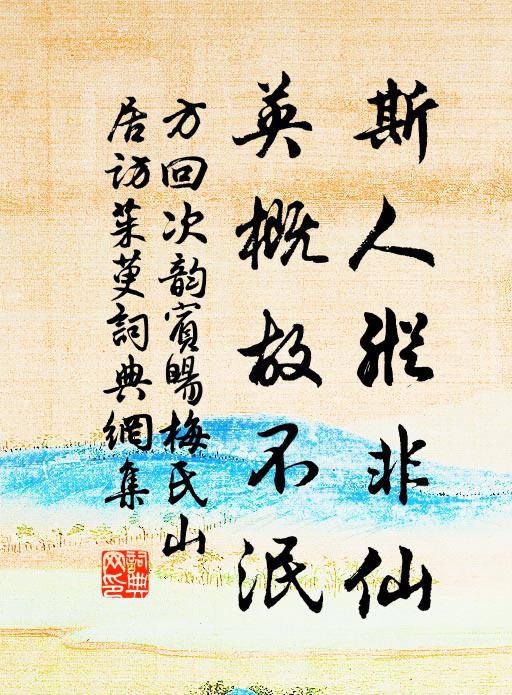 斯人縱非仙
英概故不泯
方回次韵賓暘梅氏山
居訪茱萸詞典網集
詞典
网印